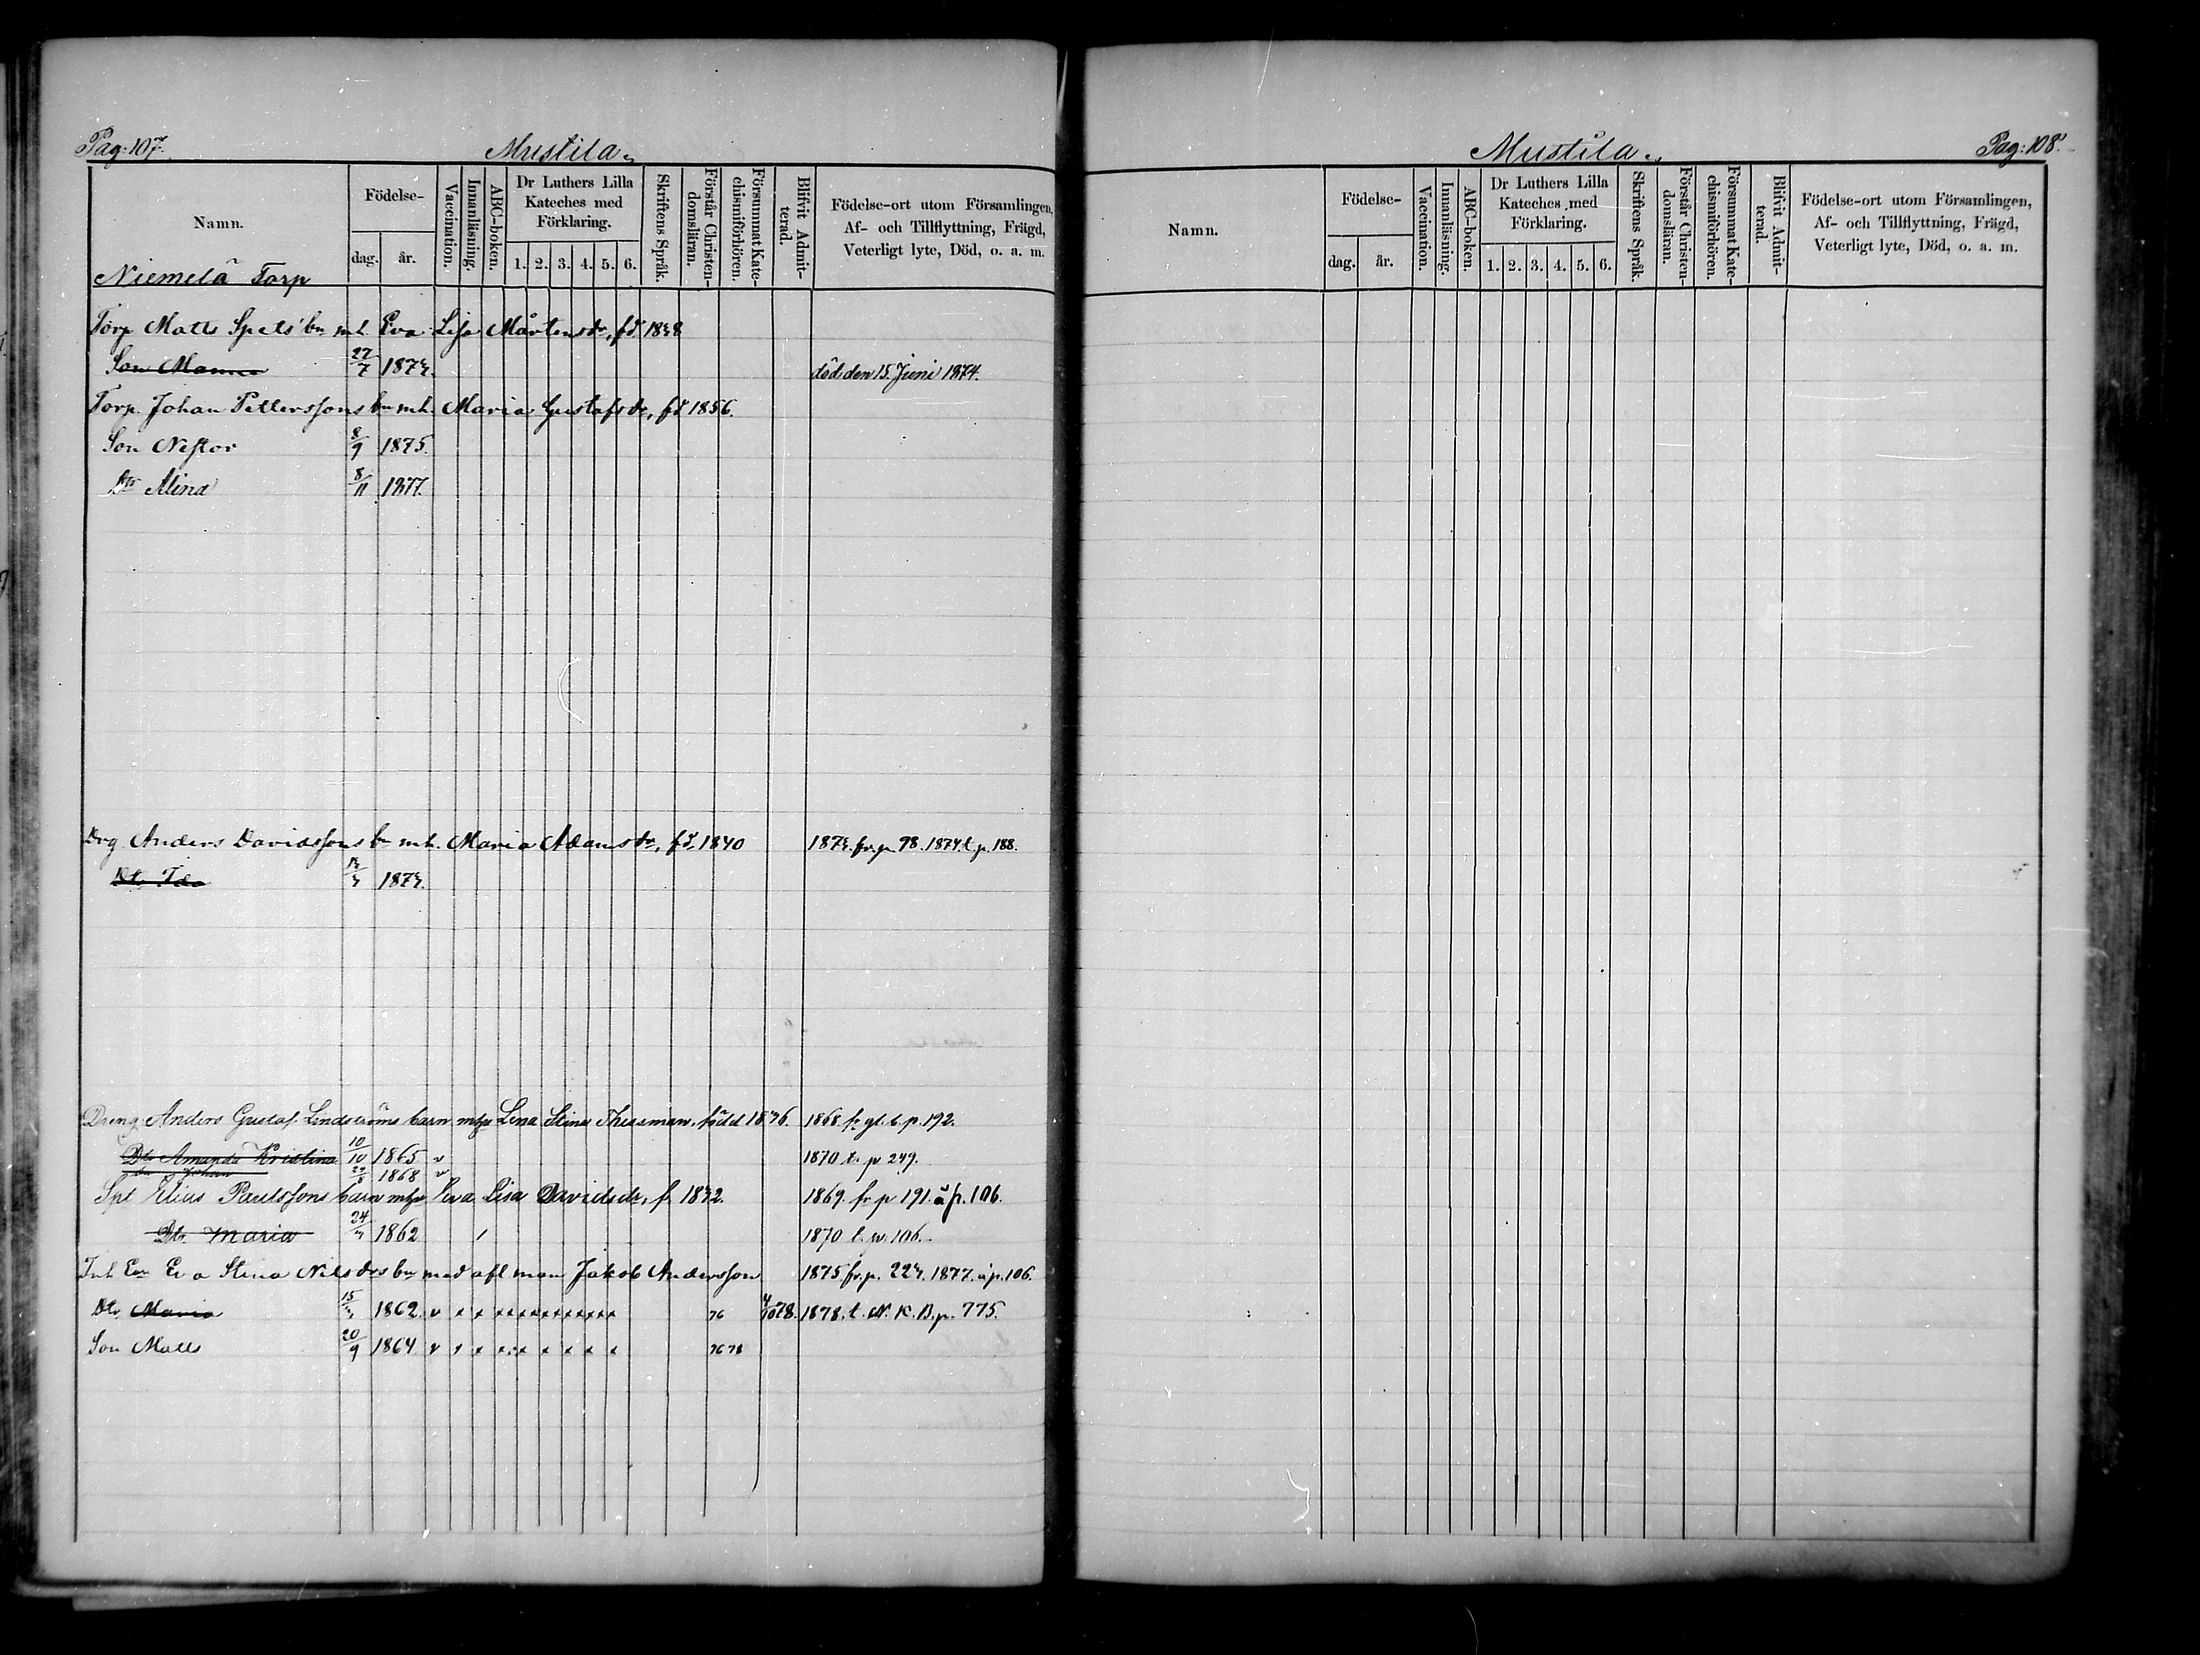 Pag: 107.
Mustila
Namn.
Födelse-
dag.
år.
Vaccination.
Innanläsning.
ABC-boken.
Dr Luthers Lilla
Kateches med
Förklaring.
1. 2. 3. 4. 5. 6.
Skriftens Språk.
Förstår Christen-
domsläran.
Försummat Kate-
chismiförhören.
Blifvit Admit-
terad.
Födelse-ort utom Församlingen,
Af- och Tillflyttning, Frägd,
Veterligt lyte, Död, o. a. m.
Niemelä Torp
Torp Matts Spets' bn m.h. Eva Lisa Mårtensdr, fd 1838
Son 27/7 1873. död den 15. Juni 1874.
Torp. Johan Petterssons bn m.h. Maria Gustafsdr, fd 1856.
Son Nestor 8/9 1875.
Dtr Alina 8/11 1877.
Drg Anders Davidssons bn m.h. Maria Adamsdr, fd 1840 1873. fr. p. 98. 1874. t. p. 188.
Dtr Ida 1873.
Dreng Anders Gustaf Lindströms barn m hu Lena Stina Thessman, född 1836. 1868 fr gl. b. p. 192.
Dtr Amanda Kristina 10/10 1865 v 1870 t. p 249.
Son Johan 1868 v
Spt Elias Paulssons barn m hu Eva Lisa Davidsdr, f. 1832. 1869. fr p 191. å p. 106.
Dtr. Maria 24/3 1862 1870 t. p. 106.
Inh. Enk. Eva Stina Nilsdrs bn med afl. man Jakob Andersson 1875 fr. p. 223. 1877. å p. 106.
Dtr Maria 15/3 1862. v x x x x x x x x x x x x 76 4/10 78. 1878. t. N. K. B. p. 775.
Son Matts 20/9 1864 v x x x x x x x x x 76 78
Mustila
Pag: 108.
Namn.
Födelse-
dag.
år.
Vaccination.
Innanläsning.
ABC-boken.
Dr Luthers Lilla
Kateches med
Förklaring.
1. 2. 3. 4. 5. 6.
Skriftens Språk.
Förstår Christen-
domsläran.
Försummat Kate-
chismiförhören.
Blifvit Admit-
terad.
Födelse-ort utom Församlingen,
Af- och Tillflyttning, Frägd,
Veterligt lyte, Död, o. a. m.